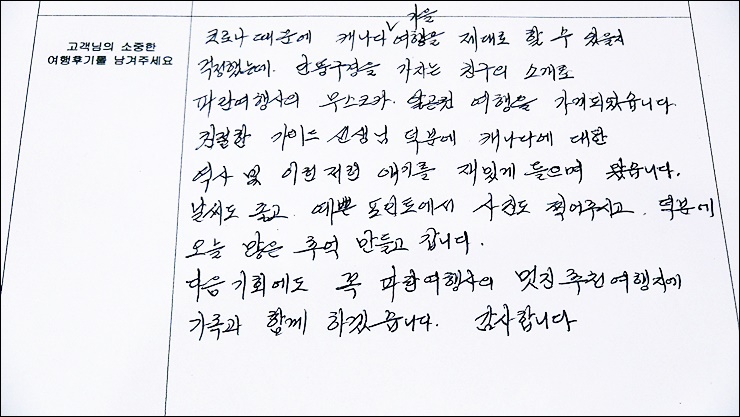 고객님의 소중한
여행후기를 남겨주세요
가을
코로나 때문에 캐나다 여행을 제대로 할 수 있을지
걱정했는데. 단풍구경을 가자는 친구의 소개로
파란여행사의 무스코카. 알곤퀸 여행을 가게되었습니다.
친절한 가이드 선생님 덕분에 캐나다에 대한
역사 및 이런저런 얘기를 재밌게 들으며 왔습니다.
날씨도 좋고 예쁜 포인트에서 사진도 찍어주시고. 덕분에
오늘 많은 추억 만들고 갑니다.
다음 기회에도 꼭 파란여행사의 멋진 추천여행지에
가족과 함께 하겠습니다. 감사합니다